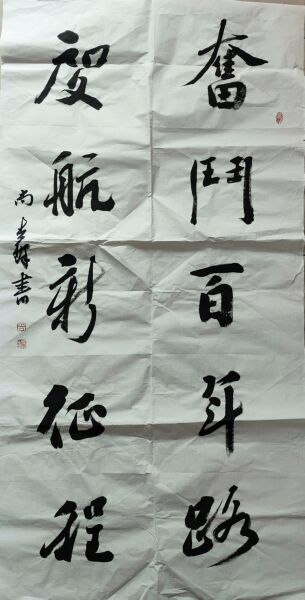 奮鬥百年路
啟航新征程
尚書